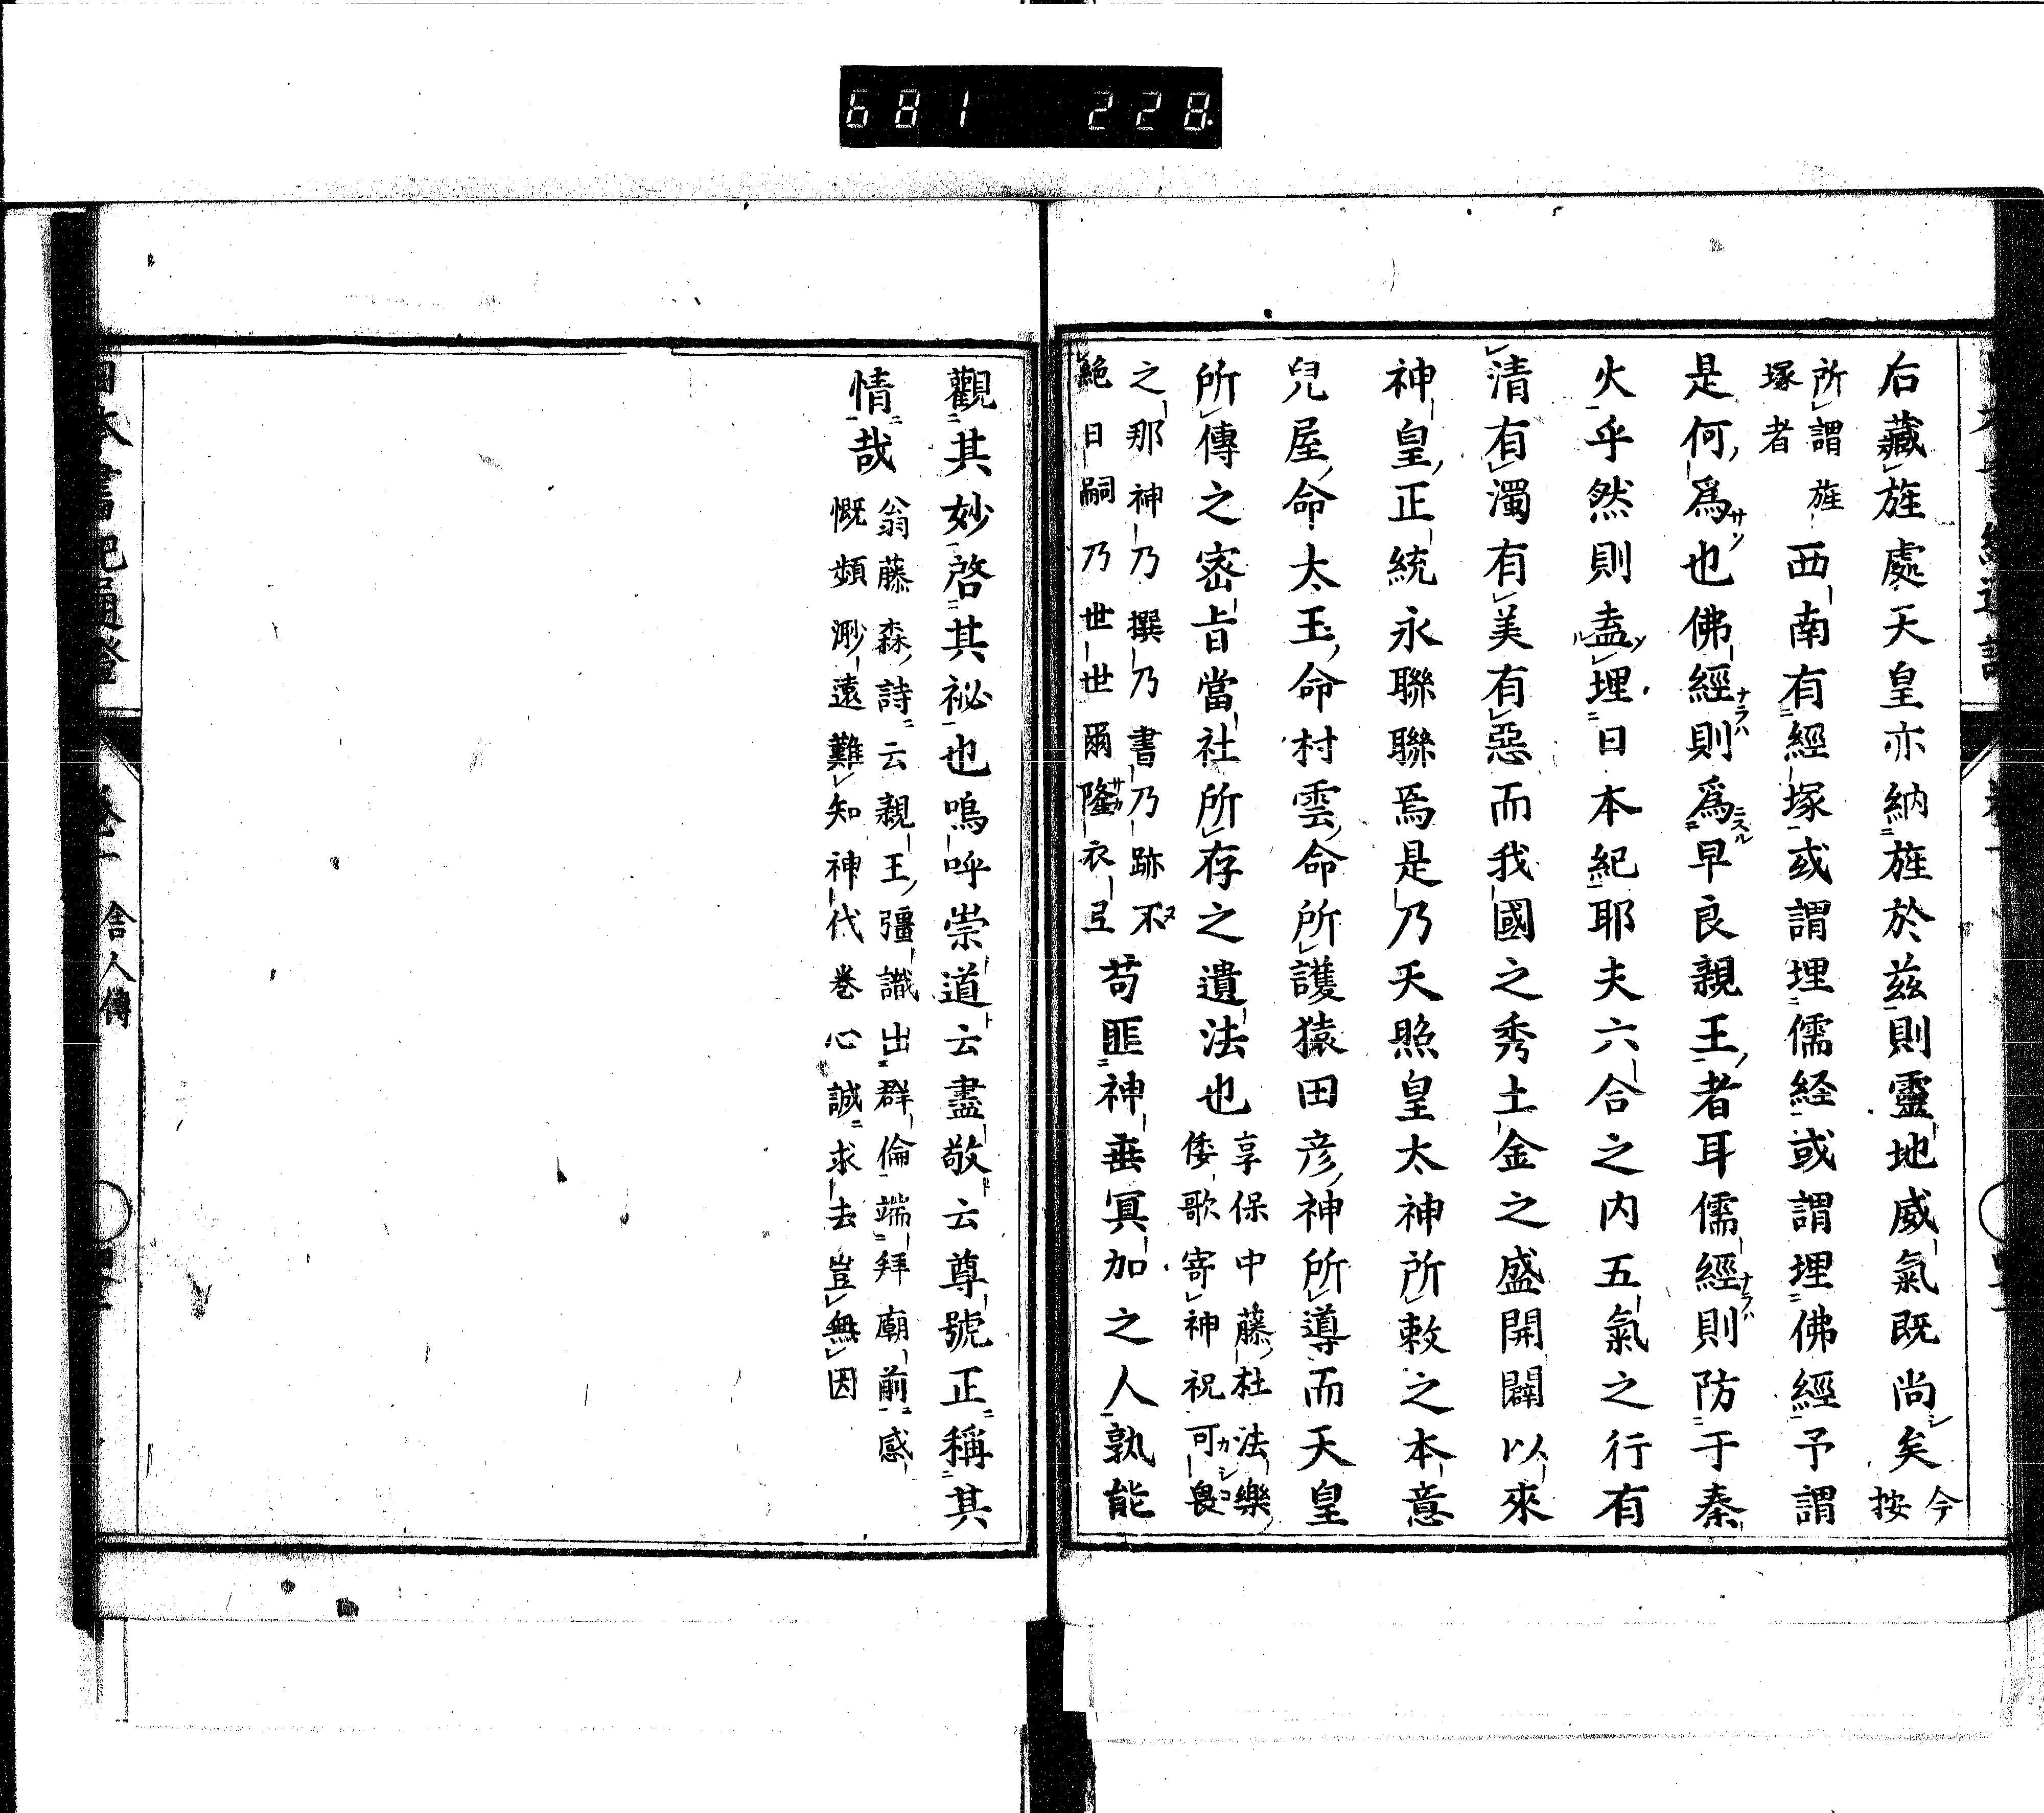 681 228
右藏旌處天皇亦納旌於茲則靈地威氣既尚矣今按
所謂旌塚者西南有經塚或謂埋儒経或謂埋佛經予謂
是何爲也佛經則爲早良親王者耳儒經則防于秦
火乎然則盍埋日本紀耶夫六合之内五氣之行有
清有濁有美有惡而我國之秀土金之盛開闢以來
神皇正統永聯聯焉是乃天照皇太神所敕之本意
兒屋命太玉命村雲命所護猿田彦神所導而天皇
所傳之密旨當社所存之遺法也享保中藤杜法樂倭歌寄神祝可畏
之那神乃撰乃書乃跡不絶日嗣乃世世爾隆衣弖苟匪神垂冥加之人孰能
觀其妙啓其祕也嗚呼崇道云盡敬云尊號正稱其
情哉翁藤森詩云親王彊識出群倫端拜廟前感慨頻渺遠難知神代卷心誠求去豈無因
日本書紀通證 卷一 舍人傳